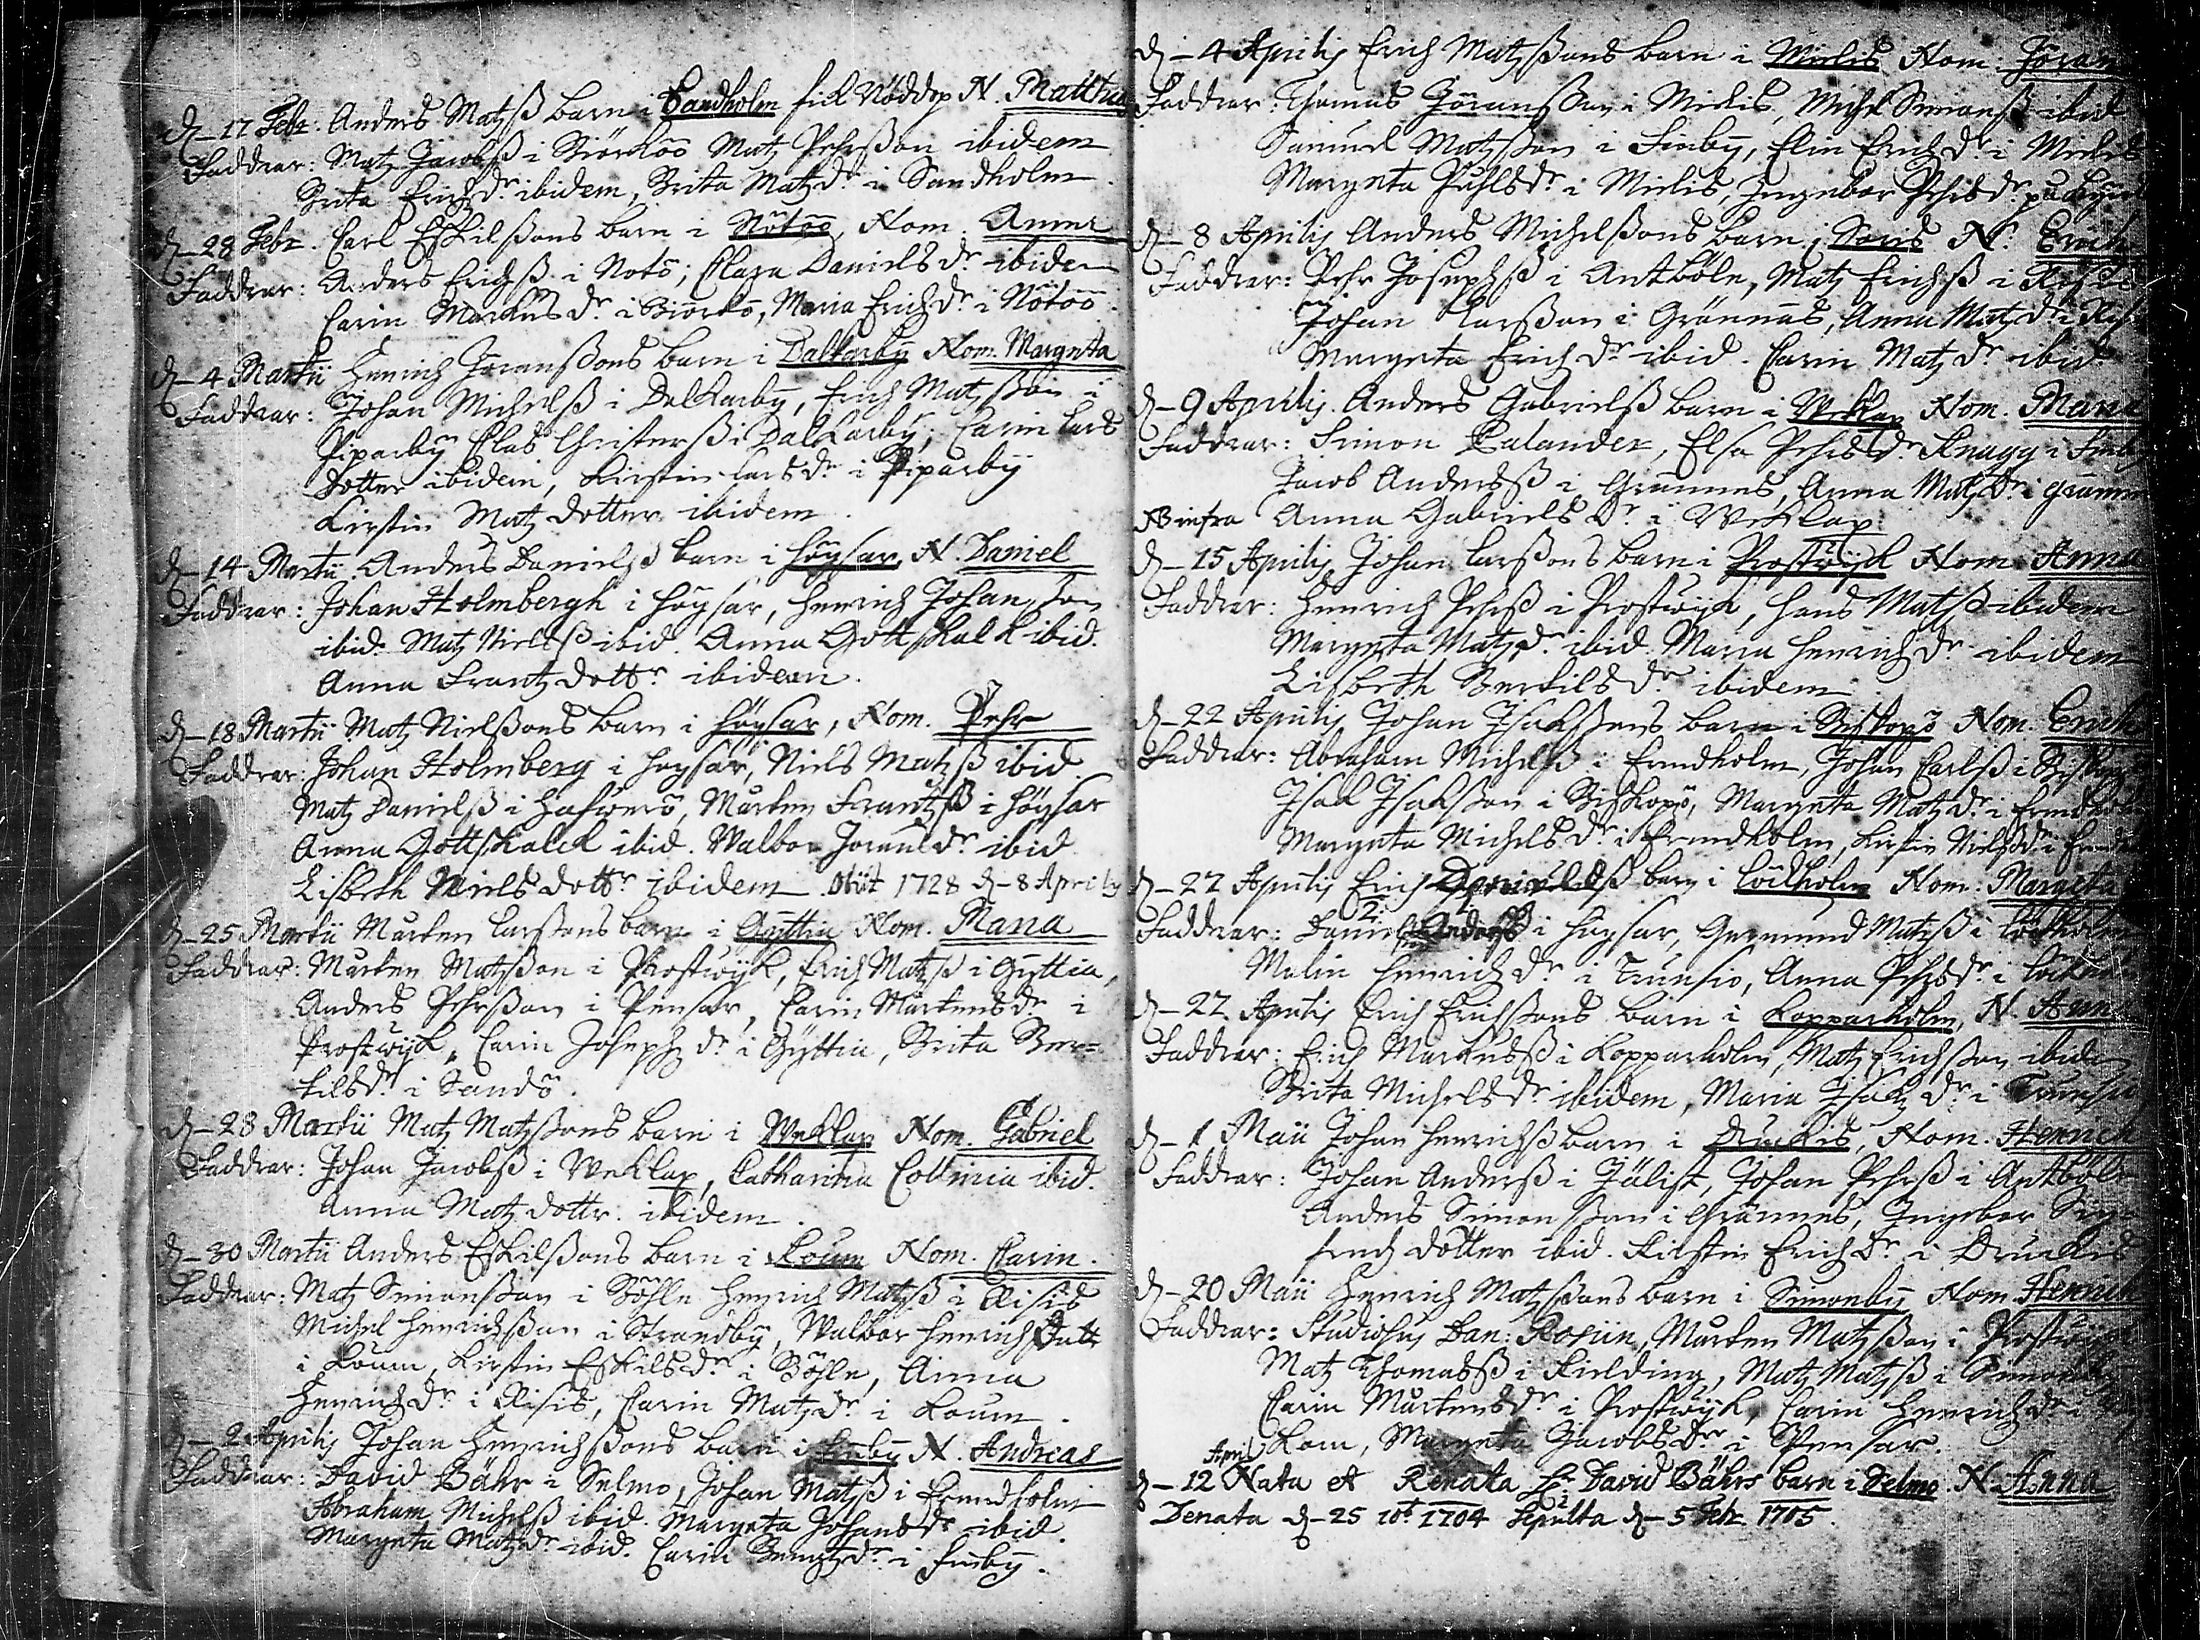 d. 17 Febr. Anders Matzß barn i Sandholm fick Nöddop N. Matthias
Faddrar: Matz Jacobß i Biörköö Matz Pehrßon ibidem
Brita Erichzdr ibidem, Brita Matzdr i Sandholm
d. 28 Febr. Carl Eskilßons barn i Nötöö, Nom. Anna
Faddrar: Anders Erichß i Nötö; Clara Danielsdr ibidem
Carin Markusdr i Biörkö, Maria Erichdr i Nötöö
d. 4 Martii Henrich Joranßons barn i Dalkarby Nom. Margeta
Faddrar: Johan Michelß i Dalkarby, Erich Matzßon i
Piparby Clas Christerß i Dalkarby, Carin Lars
dotter ibidem, Kirstin Larsdr i Piparby
Kirstin Matzdotter ibidem.
d. 14 Martii Anders Danielß barn i Högsar N. Daniel
Faddrar: Johan Holmbergh i Högsar, Henrich Johanßon
ibid. Matz Nielsß ibid. Anna Gottskalk ibid.
Anna Frantzdottr ibidem.
d. 18 Martii Matz Nielßons barn i Högsar, Nom. Pehr
Faddrar: Johan Holmberg i Högsar, Niels Matzß ibid.
Matz Danielß i, Mårten Frantzß i Högsar
Anna Gottskalck ibid. Walbor Joransdr ibid.
Lisbeth Nielsdottr ibidem Obiit 1728 d. 8 Aprilis
d. 25 Martii Mårten Larßons barn i Gyttia Nom. Maria
Faddrar: Mårten Matzßon i Prostwyk, Erich Matzß i Gyttia,
Anders Pehrßon i Pensar, Carin Mårtensdr i
Prostwyk, Carin Josephzdr i Gyttia, Brita Ber=
tilsdr i Sandö.
d. 28 Martii Matz Matzßons barn i Weklax Nom. Gabriel
Faddrar: Johan Jacobß i Weklax, Catharina Collinia ibid.
Anna Matzdottr. ibidem.
d. 30 Martii Anders Eskilßons barn i Loum Nom. Carin.
Faddrar: Matz Simonßon i Böhle Henrich Matzß i Risis
Michel Henrichßon i Strandby, Walbor Henrichdottr
i Loum, Kirstin Eskilsdr i Böhle, Anna
Henrichdr i Risis, Carin Matzdr i Loum.
d. 2 Aprilis Johan Henrichßons barn i Finby N. Andreas
Faddrar: David Bähr i Selmo, Johan Matzß i Ernholm
Abraham Michelß ibid. Margeta Johansdr ibid.
Margeta Matzdr ibid. Carin Bengtzdr i Finby.
d. 4 Aprilis Erich Matzßons barn i Mielis Nom. Jöran
Faddrar: Thomas Göranßon i Mielis, Michel Simonß ibid.
Samuel Matzßon i Finby, Elin Erichdr i Mielis
Margeta Påhlsdr i Mielis, Ingebor Pehrsdr på
d. 8 Aprilis Anders Michelßons barn i Soris N. Erich
Faddrar: Pehr Josephsß i Antböle, Matz Erichß i Risis
Johan Larßon i Grännäs, Anna Matzdr i
Margeta Erichdr ibid. Carin Matzdr ibid.
d. 9 Aprilis. Anders Gabrielß barn i Weklax Nom. Maria
Faddrar: Simon Palander, Elsa Pehrsdr Knagg i Finby
Jacob Andersß i Grännes, Anna Matzdr i
NB infra Anna Gabrielsdr i Weklax
d. 15 Aprilis Johan Larßons barn i Prostwyk Nom. Anna
Faddrar: Henrich Pehrß i Prostwyk, Hans Matsß ibidem
Margeta Matzdr ibid. Maria Henrichdr ibidem
Lisbeth Bertilsdr ibidem
d. 22 Aprilis Johan Isakßons barn i Biskopö Nom. Erich
Faddrar: Abraham Michelß i Ernholm, Johan Carlß i Biskopö
Isak Isakßon i Biskopö, Margeta Matzdr i
Margeta Michelsdr i Ernholm, Kirstin Nielsdr i
d. 22 Aprilis Erich Danielsß barn i Löökholm Nom: Margeta
Faddrar: Daniel Anders i Högsar, Germund Matzß i Löökholm
Malin Henrichdr i Trunsiö, Anna Pehrsdr i
d. 22. Aprilis Erich Erichßons barn i Kopparholm, N. Anna
Faddrar: Erich Markusß i Kopparholm, Matz Erichßon ibidem
Brita Michelsdr ibidem, Maria Isakzdr i Trunsiö
d. 1 Maii Johan Henrichß barn i Druckis, Nom. Henrich
Faddrar: Johan Andersß i Jälist, Johan Pehrß i Antböle
Anders Simonßon i Grännes, Ingebor Sig=
freds dotter ibid. Kirstin Erichdr i Druckis
d. 20 Maii Henrich Matzßons barn i Simonby Nom. Henrich
Faddrar: Studiosus Dan: Rosiin, Mårten Matzßon i Prostwyk
Matz Thomasß i Fielding, Matz Matzß i Simonby
Carin Mårtensdr i Prostwyk, Carin Henrichdr i
Rom, Margeta Jacobsdr i Pensar.
April
d. 12 Nata et Renata Hr David Bährs barn i Selmo N. Anna
Denata d. 25 10b. 1704 Sepulta d. 5 Febr 1705.